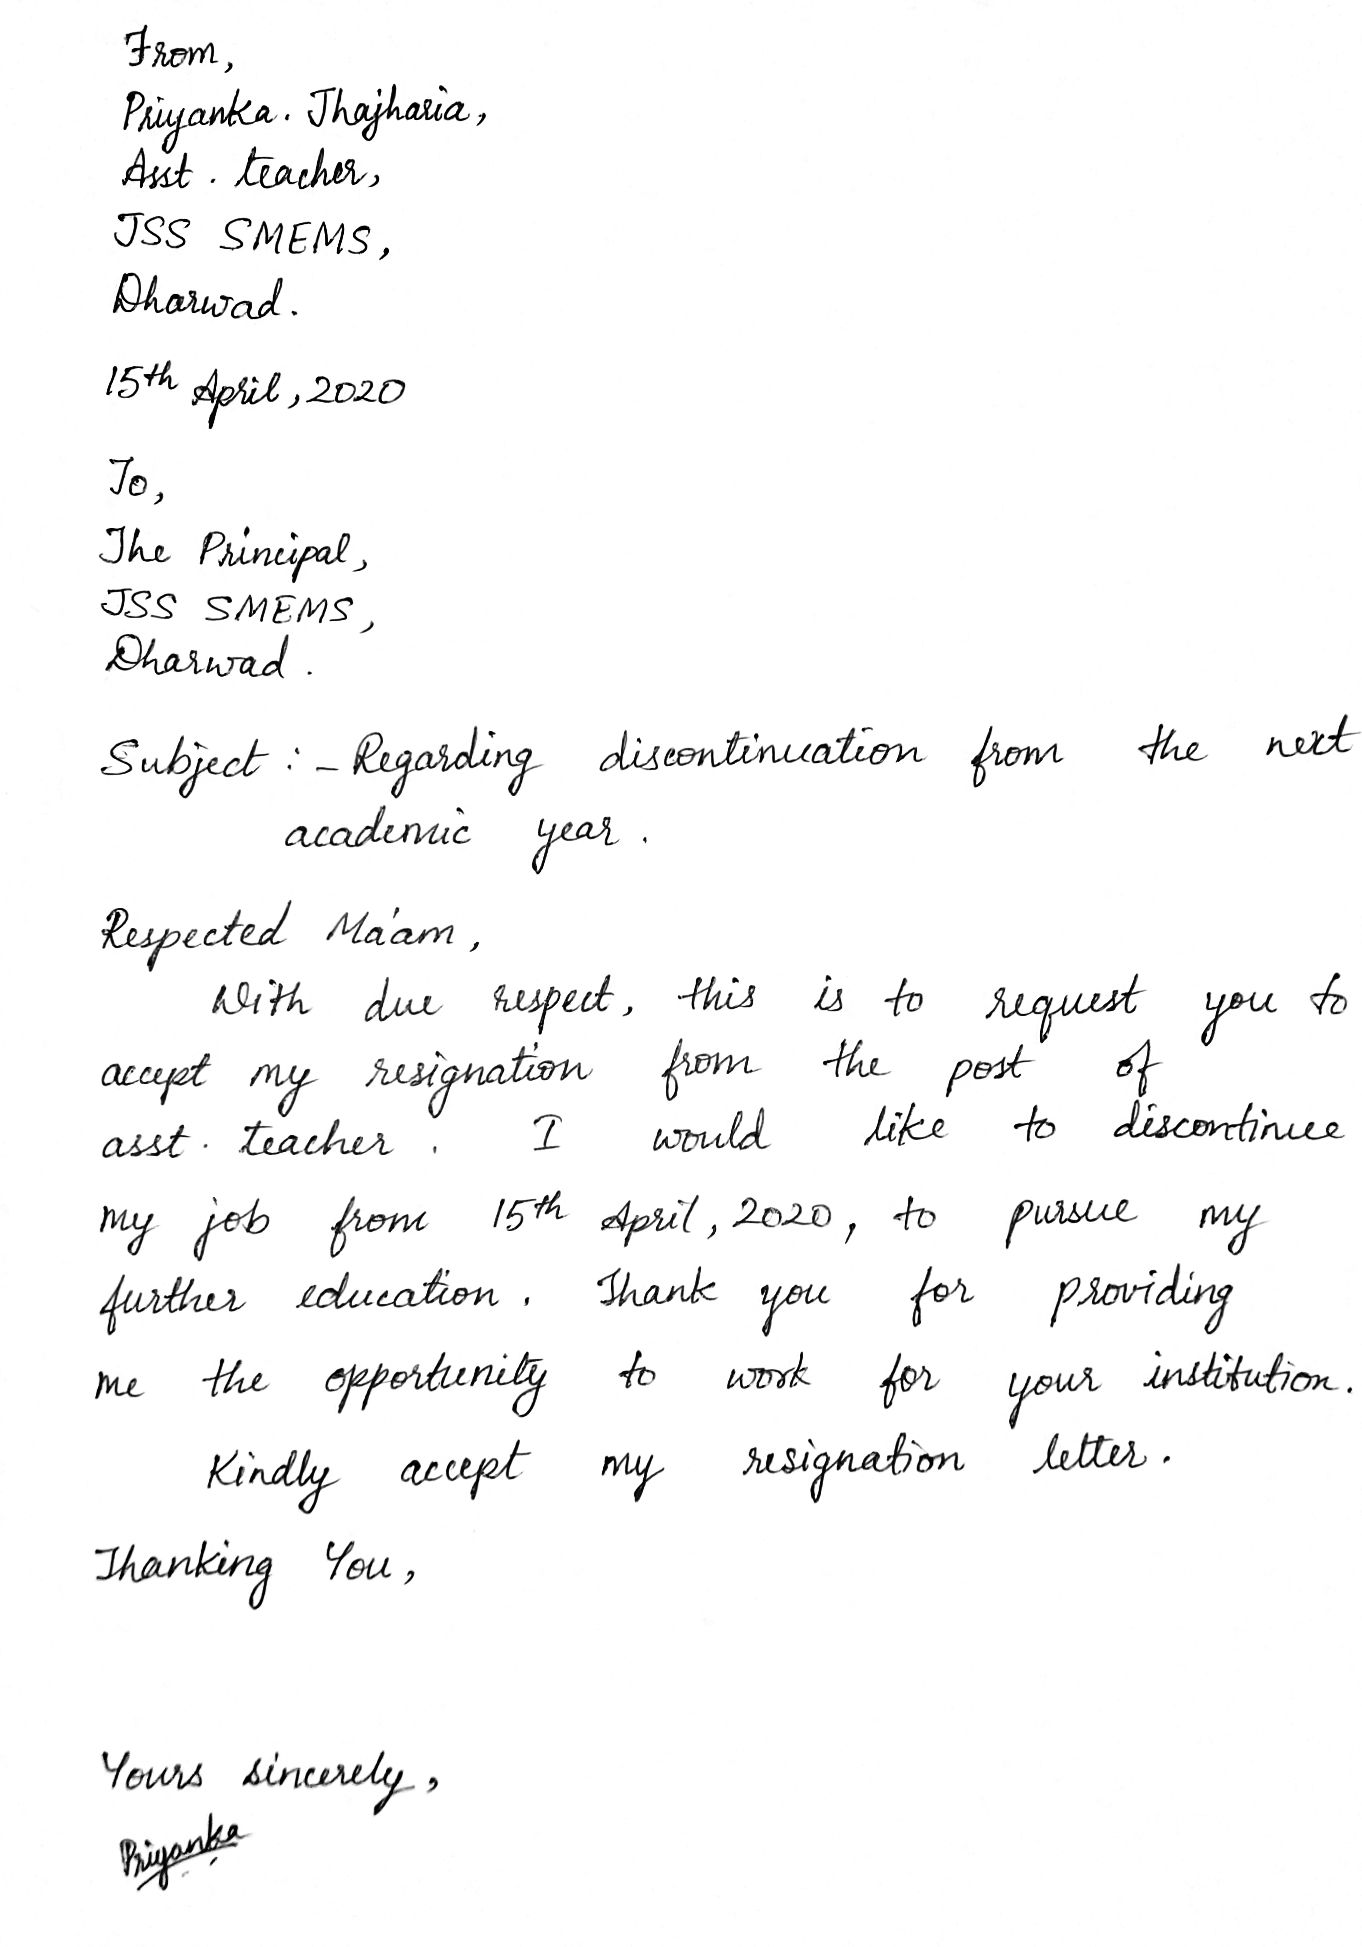 From,
Priyanka. Jhajharia,
Asst. teacher,
JSS SMEMS,
Dharwad.
15th April, 2020
To,
The Principal,
JSS SMEMS,
Dharwad.
Subject :- Regarding discontinuation from the next
academic year.
Respected Ma'am,
With due respect, this is to request you to
accept my resignation from the post of
asst. teacher. I would like to discontinue
my job from 15th April, 2020, to pursue my
further education. Thank you for providing
me the opportunity to work for your institution.
Kindly accept my resignation letter.
Thanking You,
Yours sincerely,
Priyanka